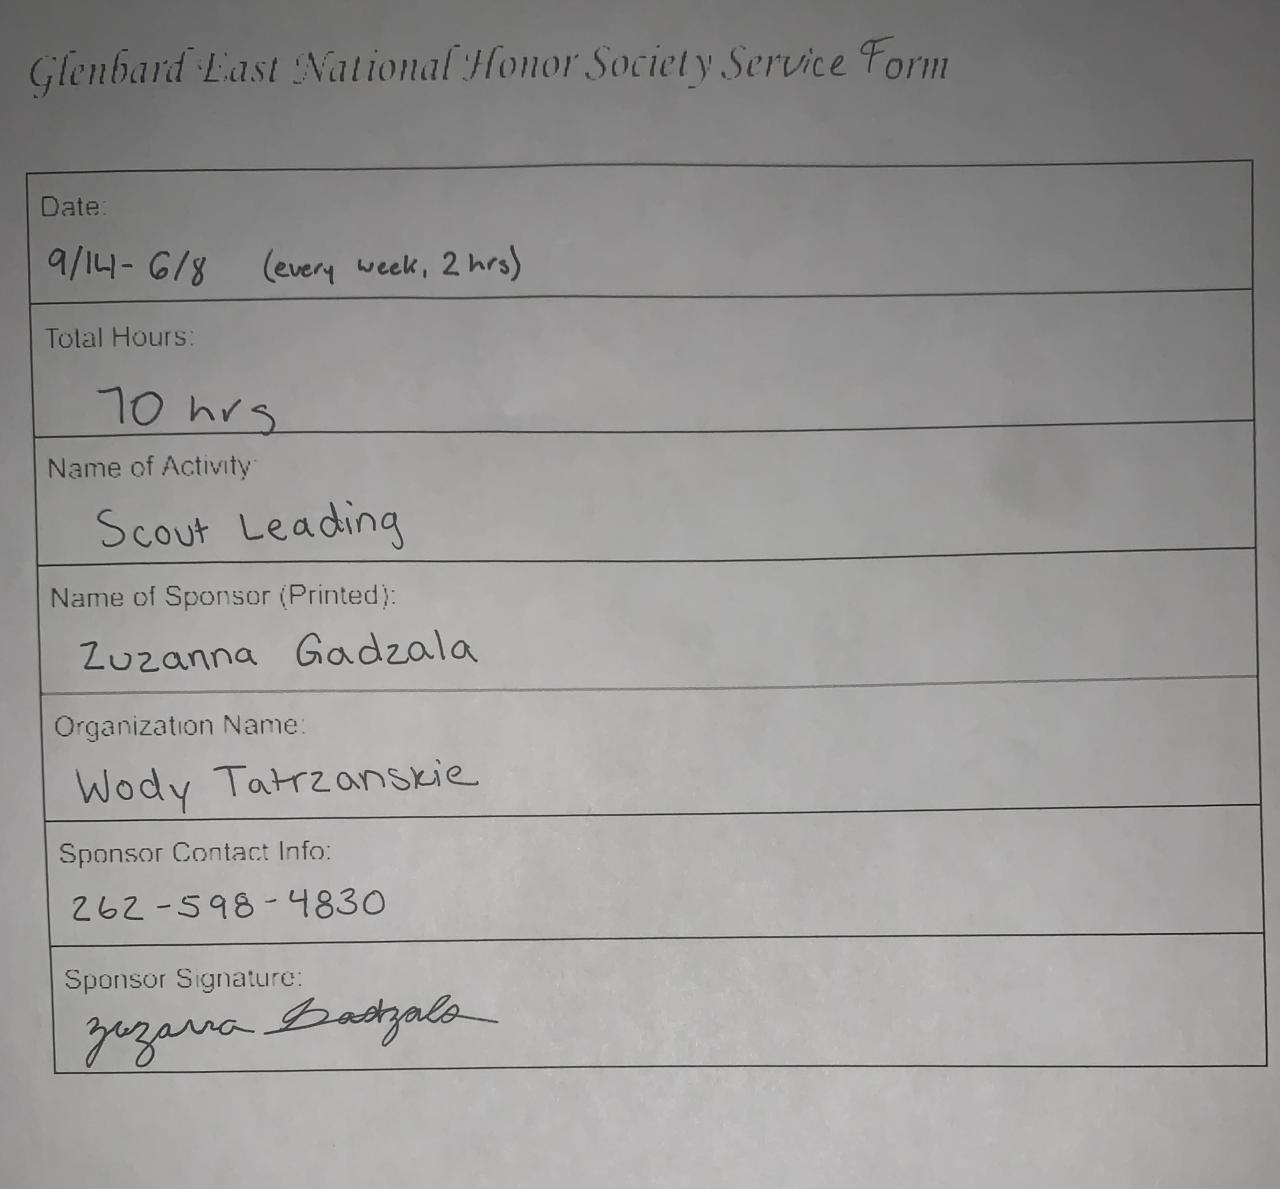 Glenbard East National Honor Society Service Form
Date:
9/14 - 6/8 (every week, 2 hrs)
Total Hours:
70 hrs
Name of Activity
Scout Leading
Name of Sponsor (Printed):
Zuzanna Gadzala
Organization Name:
Wody Tatrzanskie
Sponsor Contact Info:
262-598-4830
Sponsor Signature:
Zuzanna Gadzala